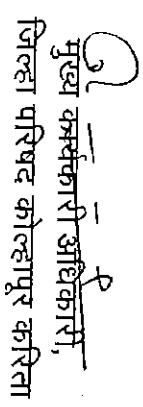 मुख्य कार्यकारी अधिकारी,
जिल्हा परिषद कोल्हापूर करिता